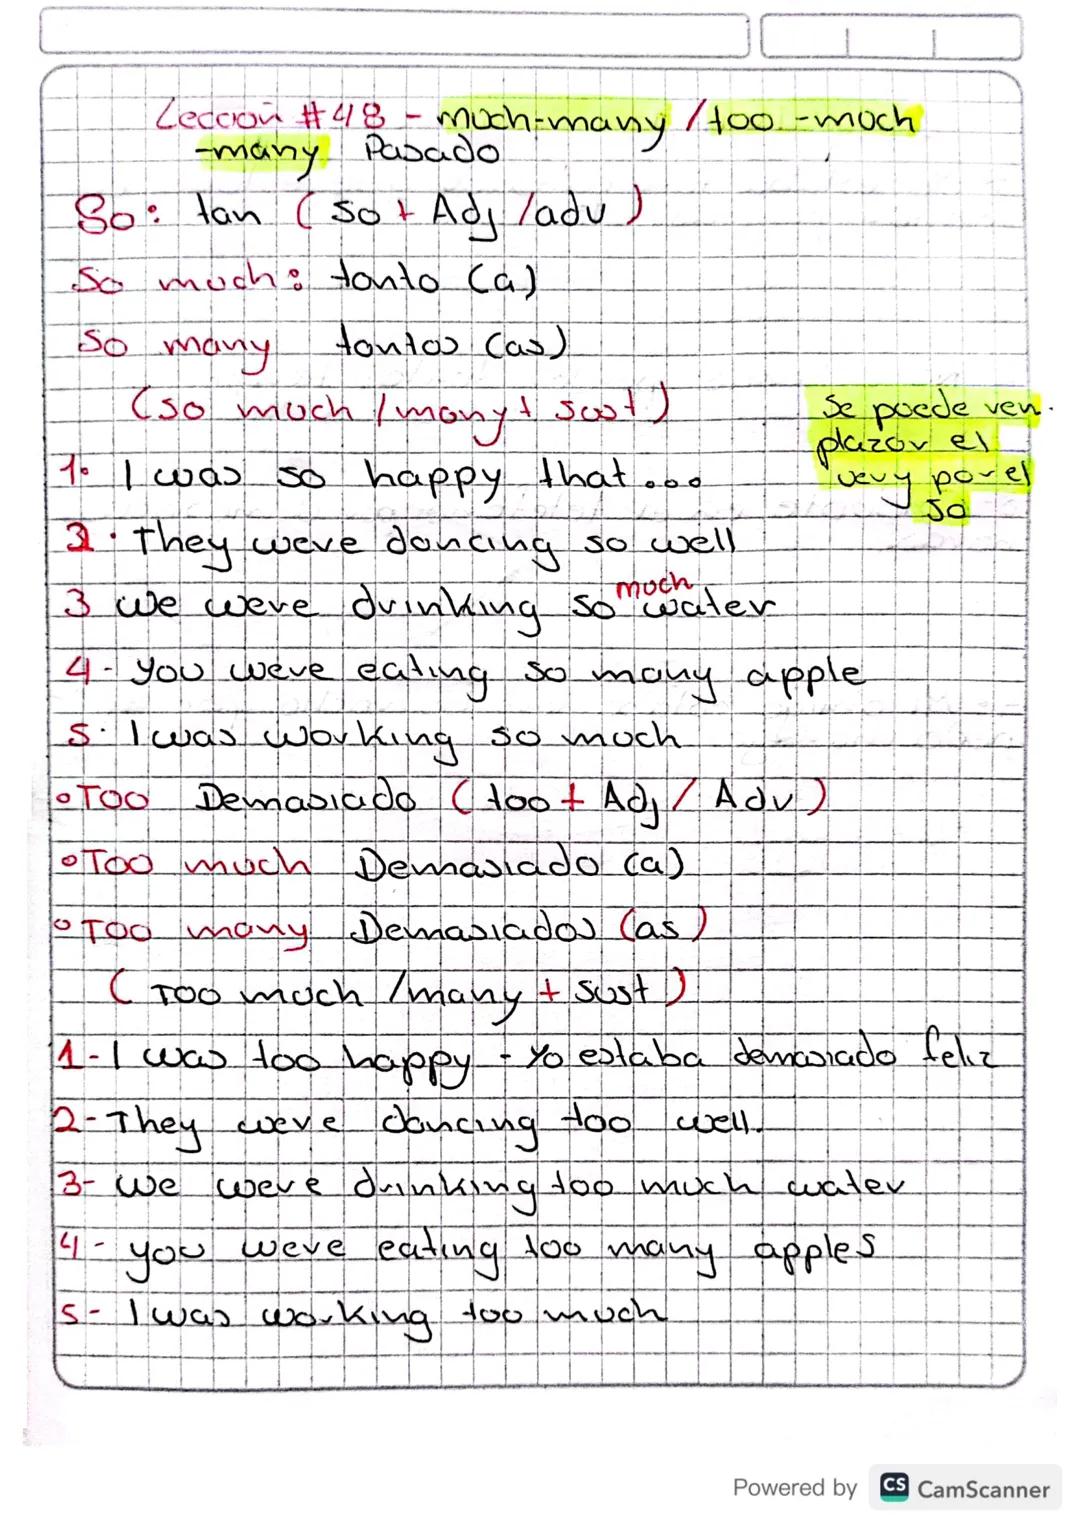 Lección #48 - much-many / too -much
-many Pasado
So: tan ( so + Adj /adv )
So much: tanto (a)
So many tantos (as)
(so much / many + sust)
Se puede rem-
plazar el
very por el
so
1. I was so happy that...
2. They were dancing so well
3 we were drinking so much water
4- you were eating so many apple
5. I was working so much
Too Demasiado ( too + Adj / Adv )
Too much Demasiado (a)
Too many Demasiados (as)
( Too much / many + sust )
1- I was too happy - Yo estaba demasiado feliz
2- They were dancing too well.
3- we were drinking too much water
4- you were eating too many apples
5- I was working too much
Powered by CS CamScanner